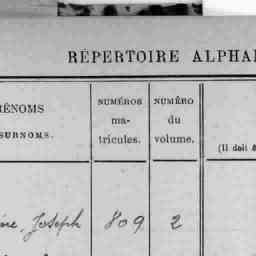 RÉPERTOIRE ALPHA
RÉNOMS
SURNOMS.
NUMÉROS
ma-
tricules.
NUMÉRO
du
volume.
(Il doit
Joseph 809 2